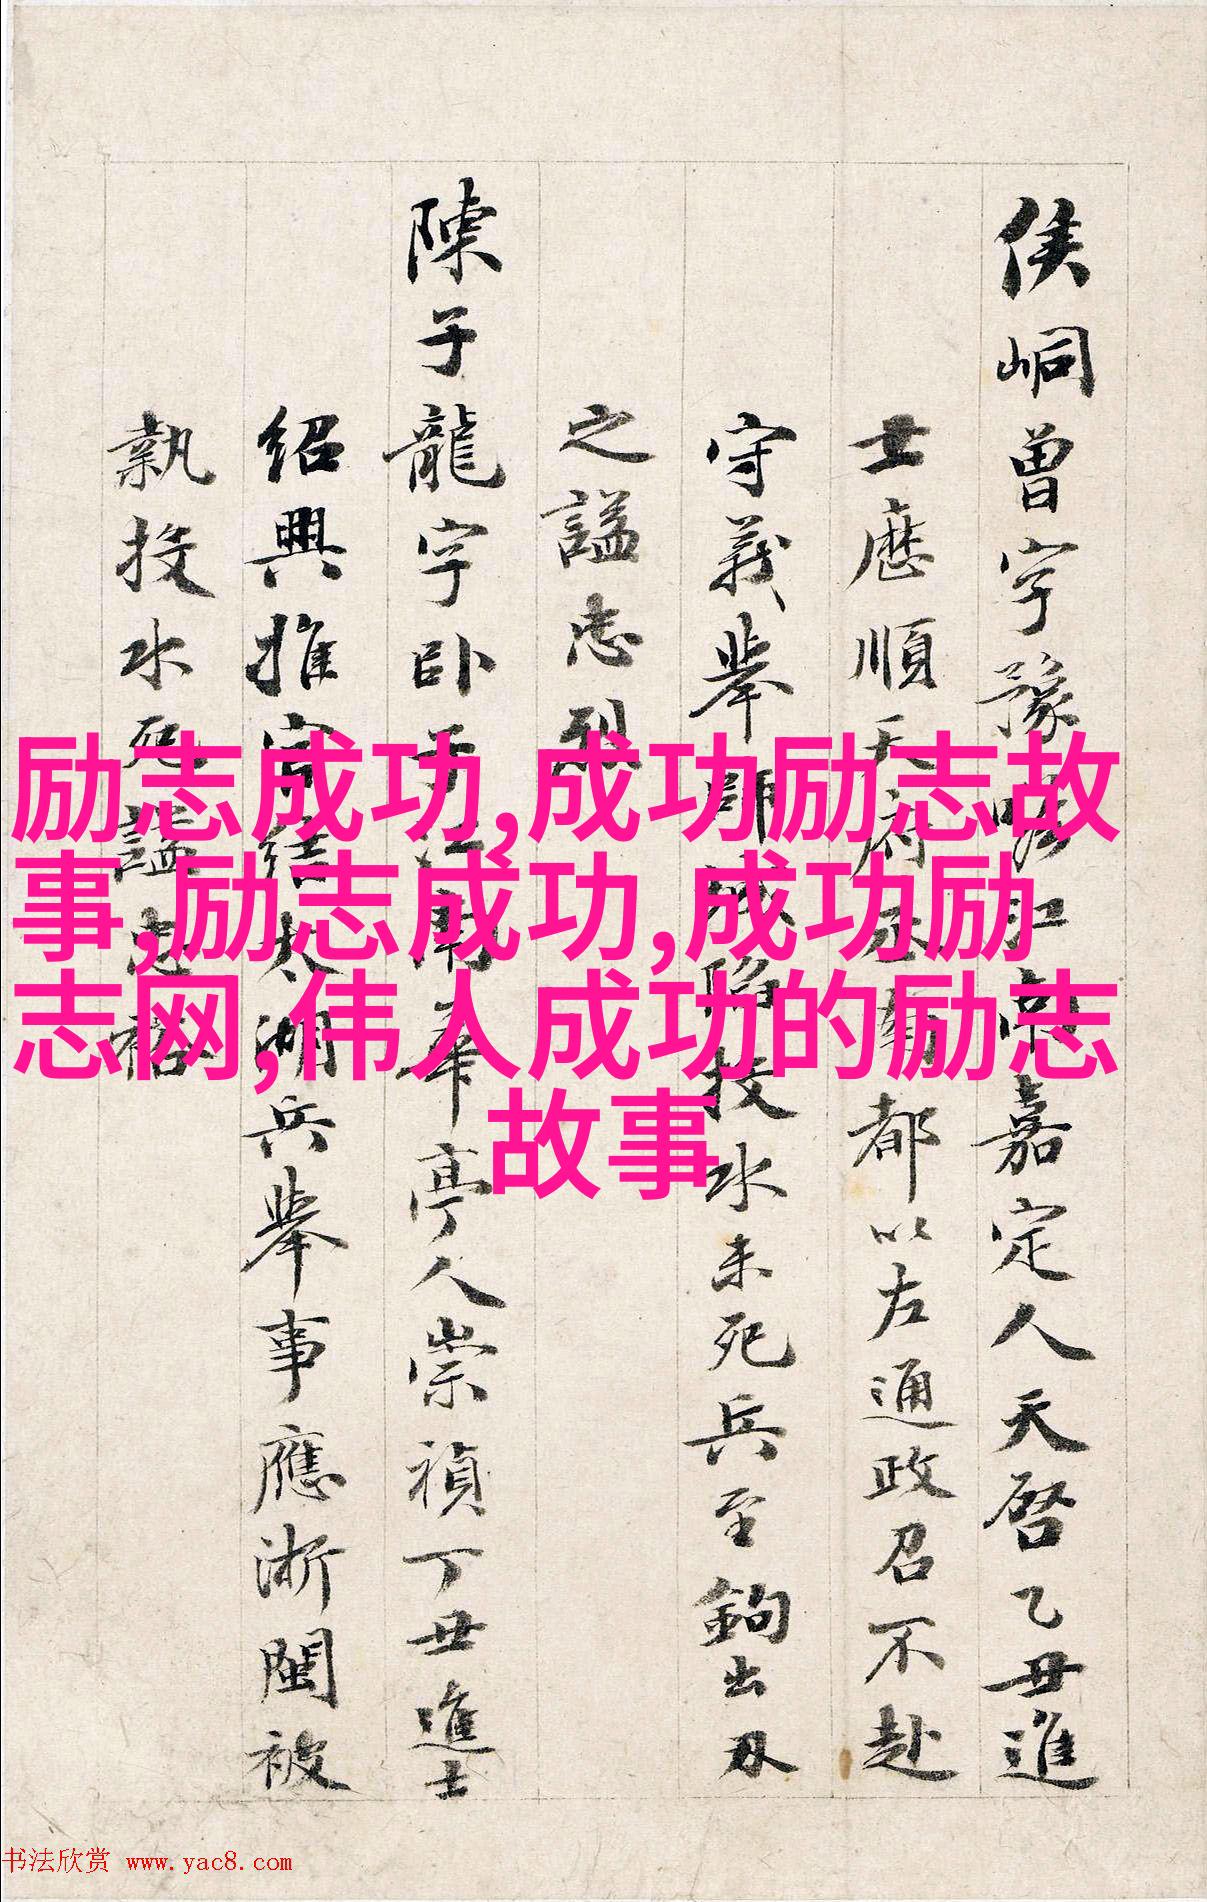 侯峒曾字豫瞻江南嘉定人天啓乙丑進
士歷順天府丞南都以左通政召不赴
守義舉師城陷投水未死兵至鉤出刃
之謚忠烈
陳子龍字臥子江南華亭人崇禎丁丑進士
紹興推官結太湖兵舉事應浙閩被
執投水死謚忠裕
励志成功,成功励志故
事,励志成功,成功励
志网,伟人成功的励志
故事
书法欣赏 www.yac8.com